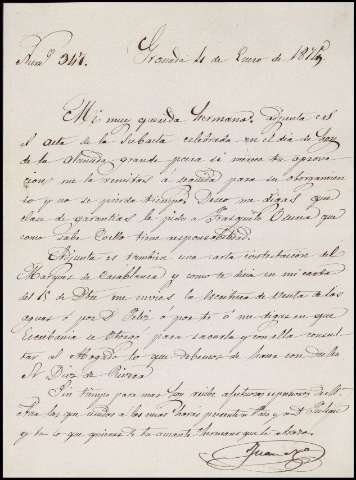 Num.º 347.
Granada 4 de Enero de 187
Mi muy querida hermana: adjunta es
el acta de la subasta celebrada en el dia de hoy
de la alameda grande para si merece tu aproba-
cion me la remitas á seguida para su otorgamien-
to y no se pierda tiempo. Deseo me digas que
clase de garantias le pido a Frasquito Osuna que
como sabe Coello tiene responsabilidad.
Adjunta es tambien una carta contestacion del
Marques de Casablanca y como te decia en mi carta
del 15 de Dbre me envies la escritura de venta de las
aguas ó por D. ó por ti ó me digas en que
Escribania se otorgó para sacarla y con ella consul-
tar al Abogado lo que debemos de hacer con dicho
Sr Diaz de Rivera
Sin tiempo para mas
las que unidos a los mios haras presente a
y tu lo que quieras de tu amante hermano que te abraza.
Juan